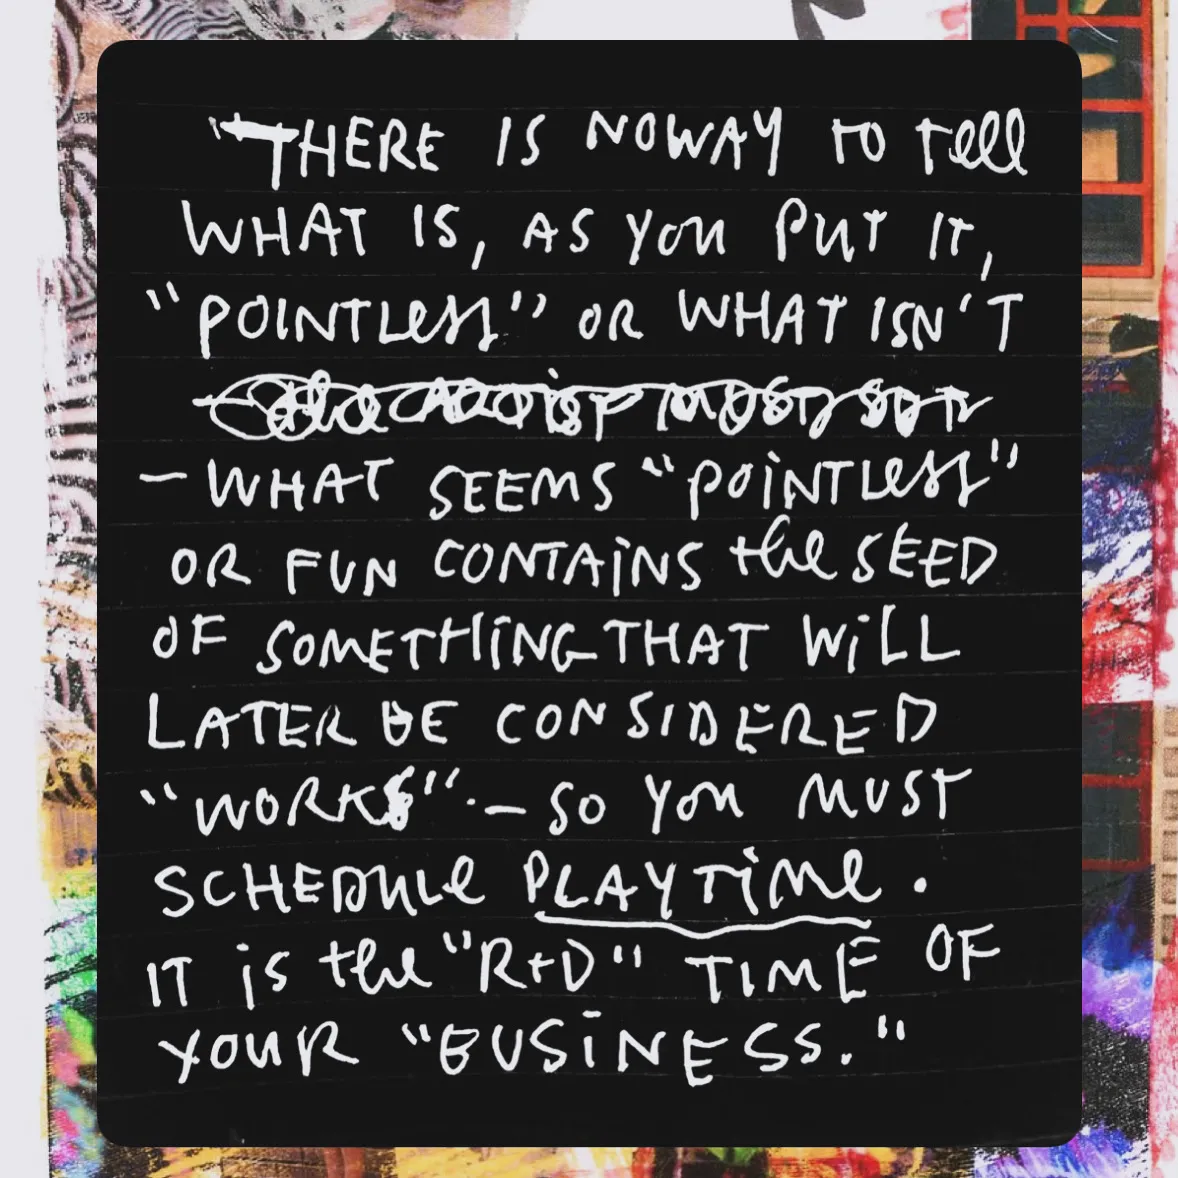 "THERE IS NO WAY TO tell
WHAT IS, AS YOU PUT IT,
"POINTLess" OR WHAT ISN'T
— WHAT SEEMS "POINTLess"
OR FUN CONTAINS the SEED
OF SOMETHING THAT WILL
LATER BE CONSIDERED
"WORKS". — SO YOU MUST
SCHEDULE PLAYTIME.
IT is the "R+D" TIME OF
YOUR "BUSINESS."